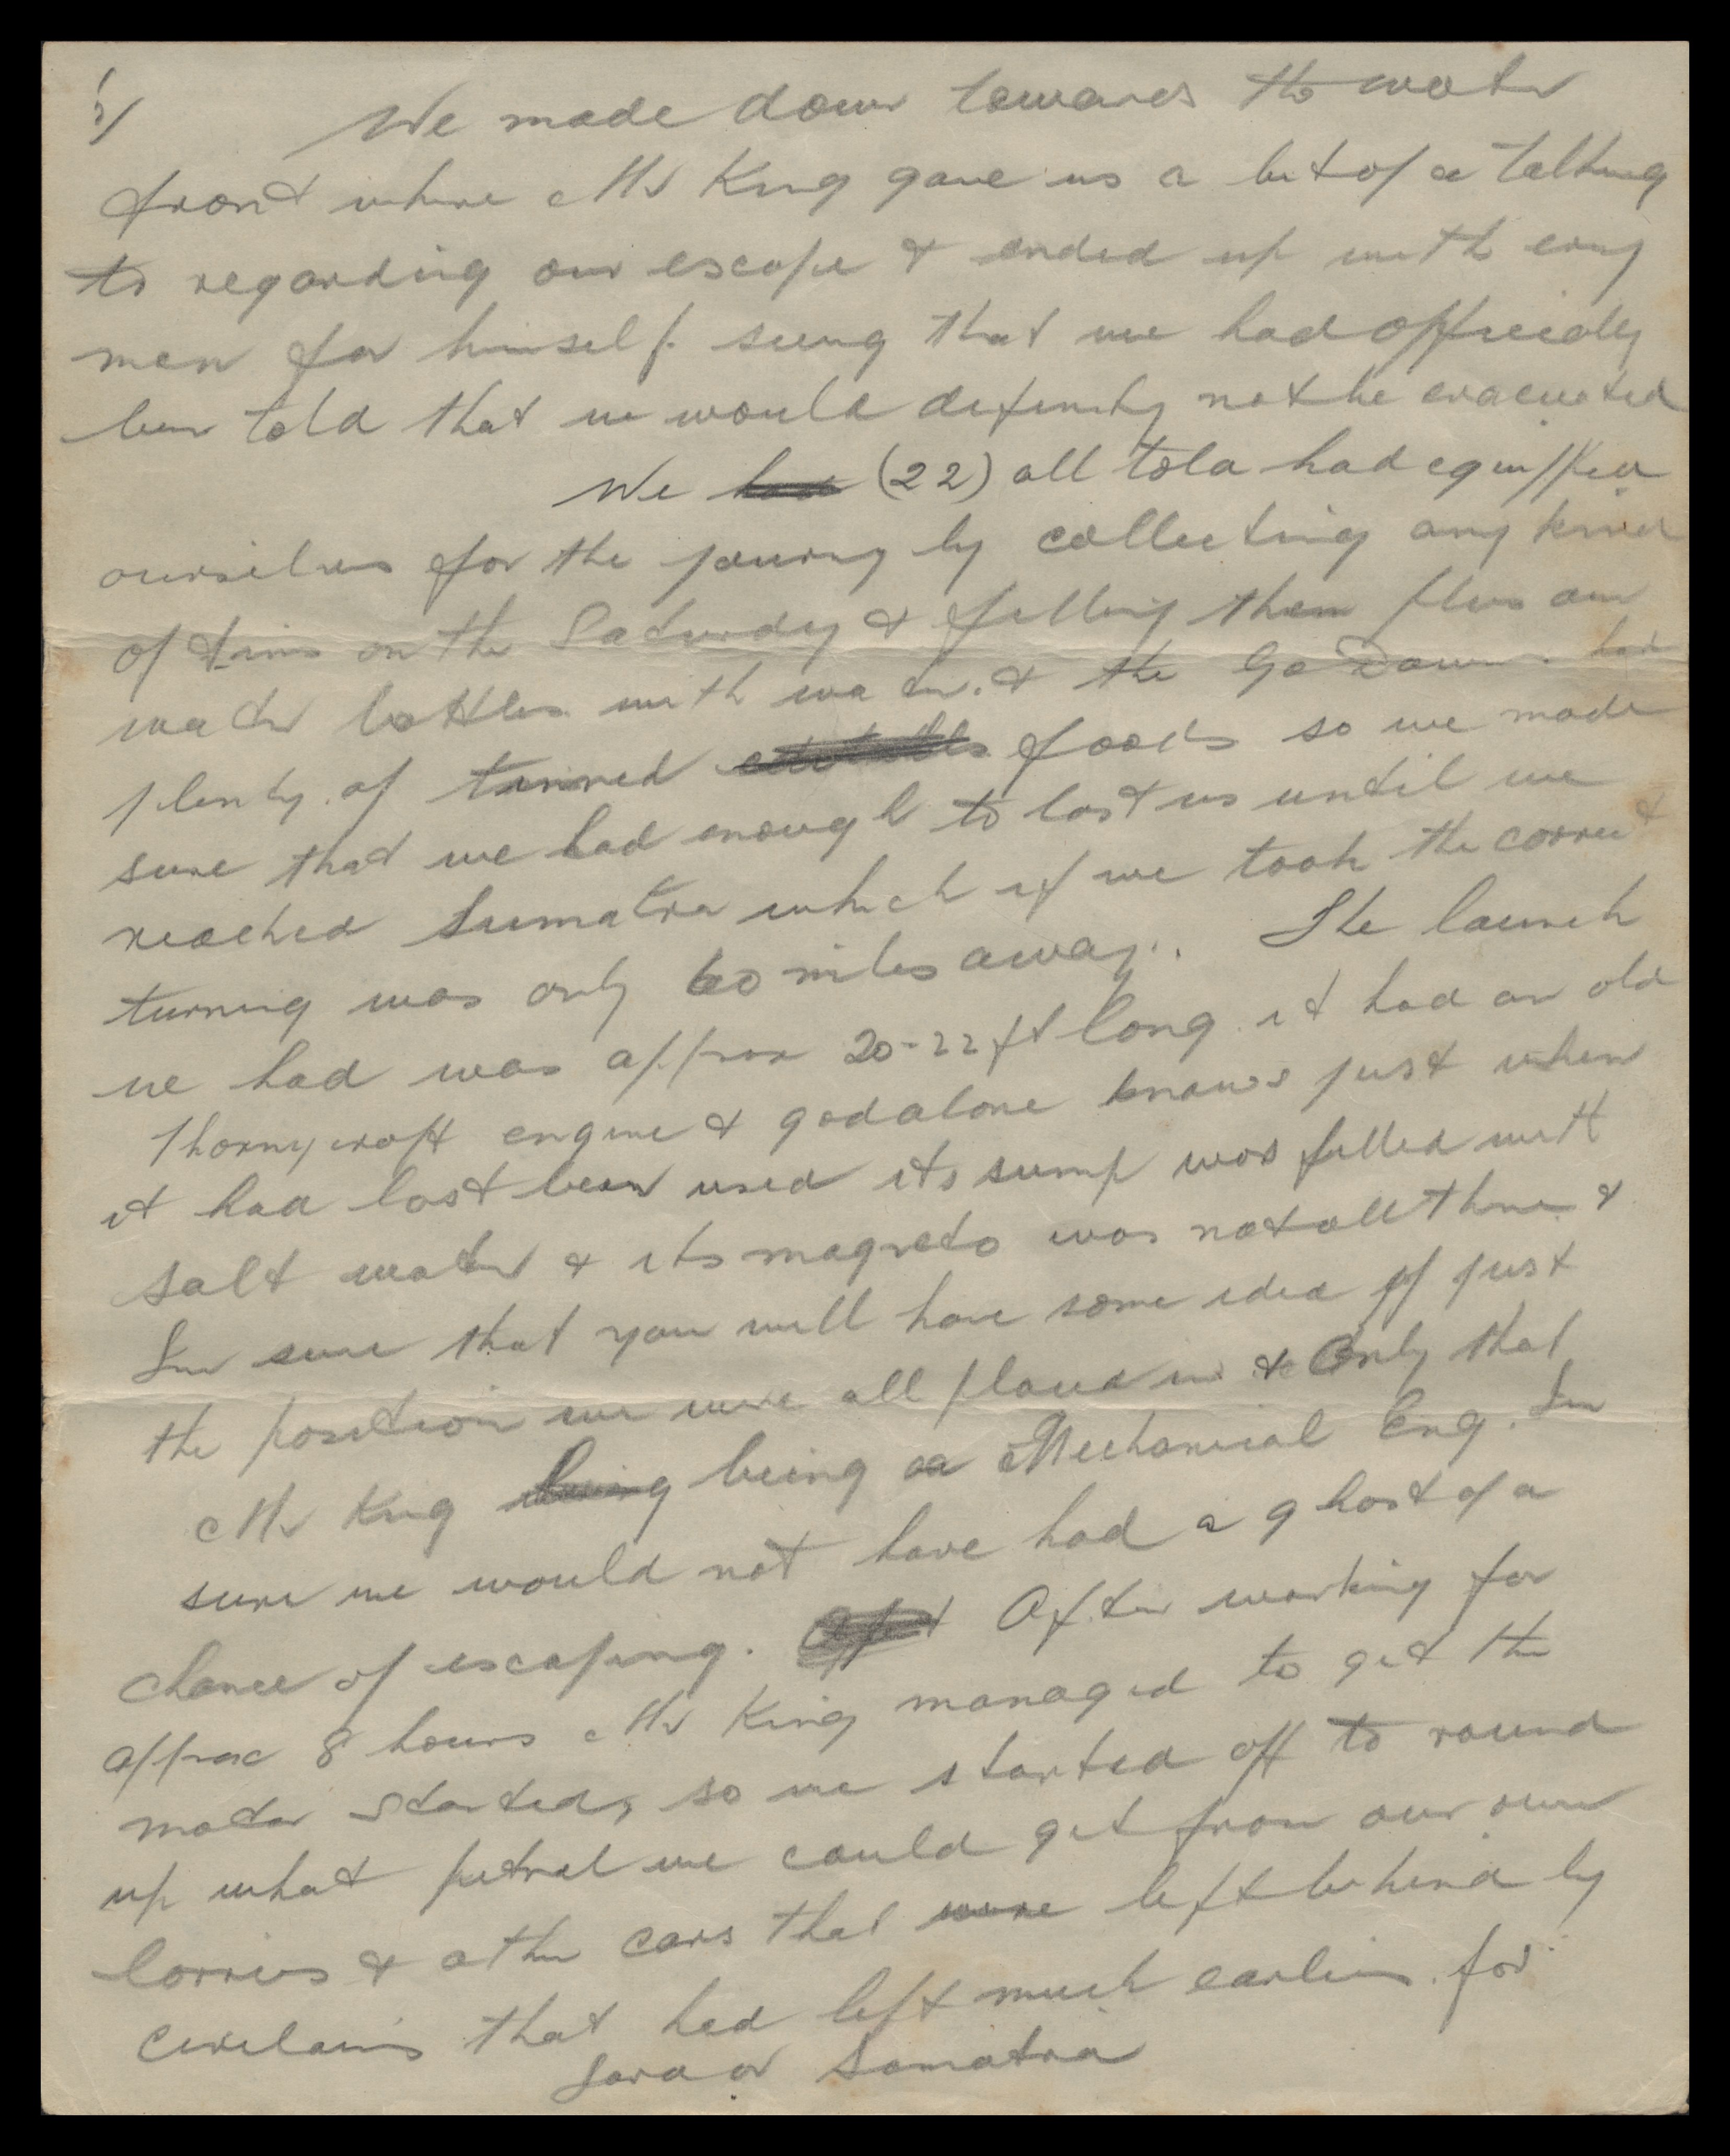 We made down towards the water
front where Mr King gave us a bit of a talking
to regarding our escape & ended up with every
man for himself. seeing that we had officially
been told that we would definitely not be evacuated
We (22) all told had equipped
ourselves for the journey by collecting any kind
of tins on the Saturday & filling them plus our
water bottles with water. & the Go Downs had
plenty of tinned foods so we made
sure that we had enough to last us until we
reached Sumatra which if we took the correct
turning was only 60 miles away. The launch
we had was approx 20-22 ft long. it had an old
Thornycroft engine & god alone knows just when
it had last been used its sump was filled with
salt water & its magneto was not all there &
Im sure that you will have some idea of just
the position we were all placed in & Only that
Mr King being a Mechanical Eng. Im
sure we would not have had a ghost of a
chance of escaping. After working for
approx 8 hours Mr King managed to get the
motor started, so we started off to round
up what petrol we could get from our own
lorries & other cars that were left behind by
civilains that had left much earlier for
Java or Sumatra